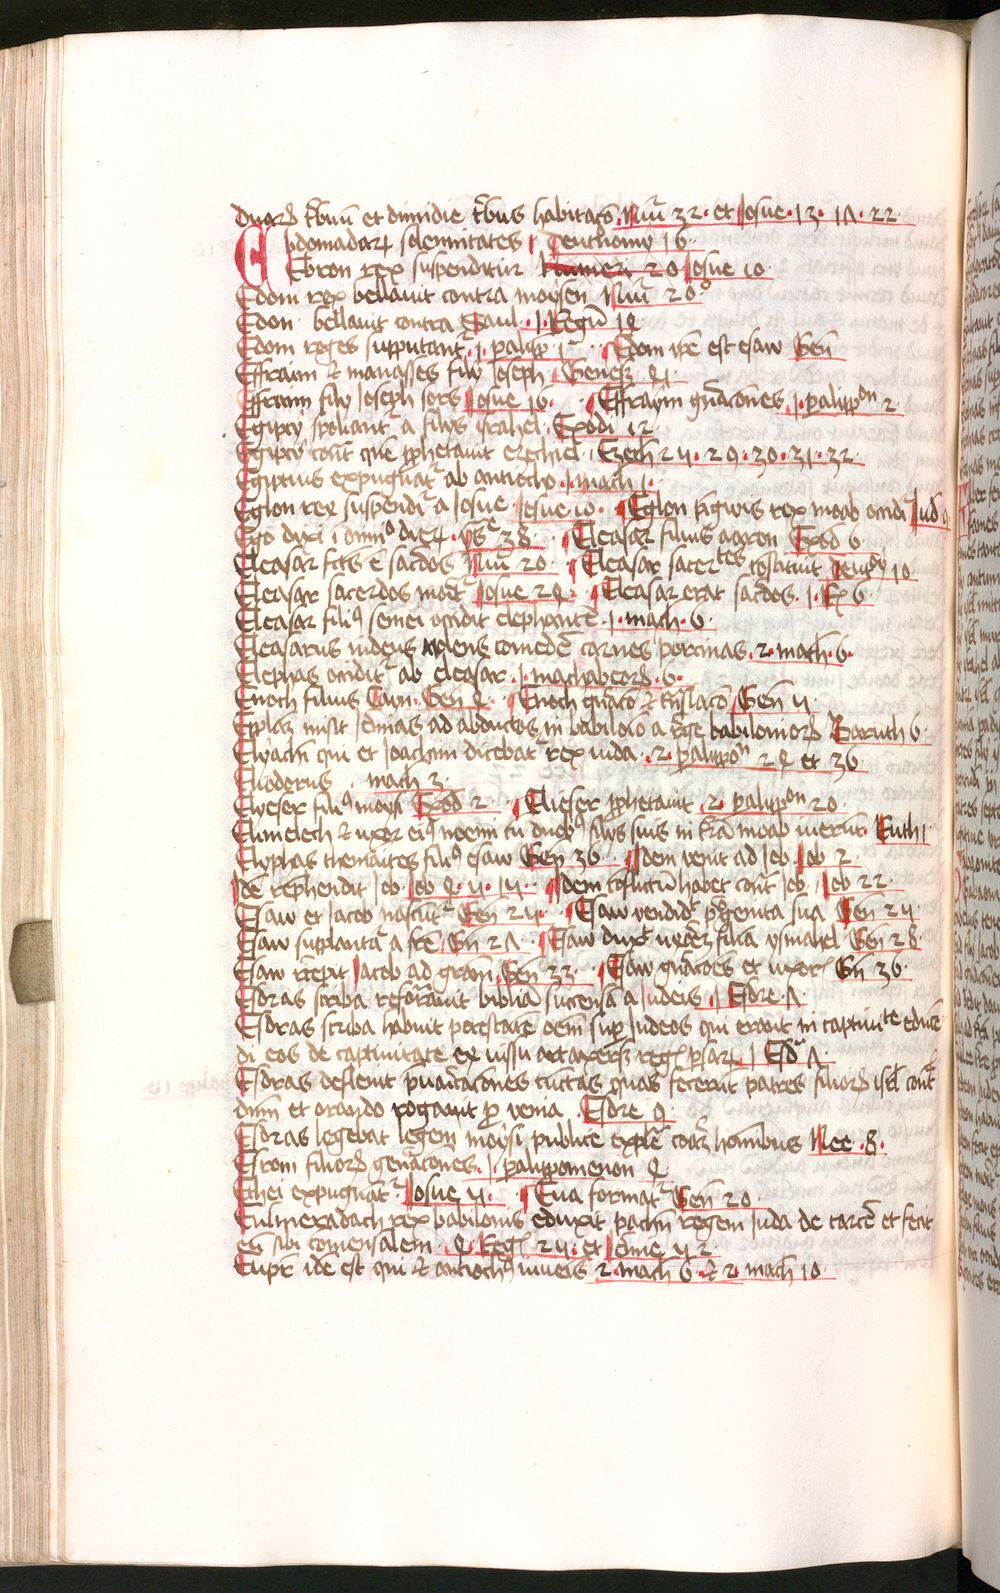 duorum tribuum et dimidie tribus habitacio Num 32 · et Josue · 13 · 17 · 22 ·
Ebdomadarum solemnitates Deutronomii 16 ·
Ebron rex suspenditur Numeri 20 Josue 10
Edom rex bellauit contra moysen Num 20
Edon bellauit contra Saul · 1 · Regum 14
Edom reges supputantur · 1 · paralipp 1 · Edom idem est esaw Gen
Effraim et manasses filii Joseph Genesis 41 ·
Effraim filii Joseph sors Josue 16 · Effraym generaciones 1 paralippon 2
Egipcii spoliantur a filiis israhel Exodi 12
Egipcii contra quem prophetauit ezechiel Ezech 24 · 29 · 30 · 31 · 32
Egiptus expugnatur ab antiocho · 1 · mach 1 ·
Eglon rex suspenditur a Josue Josue 10 · Eglon pigwis rex moab occiditur Jud 3
Ego dixi in dimidio dierum · ysa 38 · Eleasar filius aaron Exod 6 ·
Eleasar factus est sacerdos Num 20 · Eleasar sacerdotes constituit Deutro 10
Eleasar sacerdos moritur Josue 24 · Eleasar erat sacerdos · 1 · Esd 6
Eleasar filius semei occidit elephantem · 1 · mach · 6 ·
Eleasarus iudeus nolens comedere carnes porcinas · 2 · mach · 6 ·
Elephas occiditur ab eleasar · 1 · machabeorum · 6 ·
Enoch filius Cayn · Gen 4 · Enoch generacio et translacio Gen 5
Epistolam misit Jeremias ad abductos in babiloniam a rege babiloniorum Baruch 6 ·
Elyachim qui et Joachim dicebatur rex iuda · 2 · paralippon 24 et 36
Eliodorus mach 3 ·
Elyeser filius moysi Exod 2 · Elieser prophetauit · 2 · paralippon 20 ·
Elimelech et uxor eius neemi cum duobus filiis suis in terram moab iuerunt · Ruth 1
Elyphas themanites filius esaw Gen 36 · Idem venit ad Job Job 2 ·
Idem reprehendit Job Job 4 · 5 · 15 · Idem conflictum habet contra Job · Job 22 ·
Esaw et Jacob nascuntur Gen 25 · Esaw vendidit primogenita sua Gen 25
Esaw supplantatur a fratre Gen 27 · Esaw duxit uxorem filiam ysmahel Gen 28
Esaw recepit Jacob ad graciam Gen 33 · Esaw generaciones et uxores Gen 36 ·
Esdras scriba reformauit bibliam succensam a Judeis · 1 Esdre 7
Esdras scriba habuit potestatem omnem super Judeos qui erant in captiuitate educen
di eos de captiuitate ex iussu artaxersis regis persarum 1 Esdre 7 ·
Esdras defleuit preuaricaciones cunctas quas fecerunt patres filiorum israhel contra
dominum et orando rogauit pro venia · Esdre 9 ·
Esdras legebat legem moysi publice expresse coram hominibus Nee · 8 ·
Esrom filiorum generaciones · 1 · paralippomenon 4
Ethei expugnantur Josue 11 · Eua formatur Gen 20 ·
Eulmeradach rex babilonis eduxit joachim regem Juda de carcere et fecit
eum sibi comensalem · 4 · Regum 25 · et Jeremie 52 ·
Eupator idem est qui et antiochus iuuenis 2 · mach 6 · et 2 · mach 10 ·